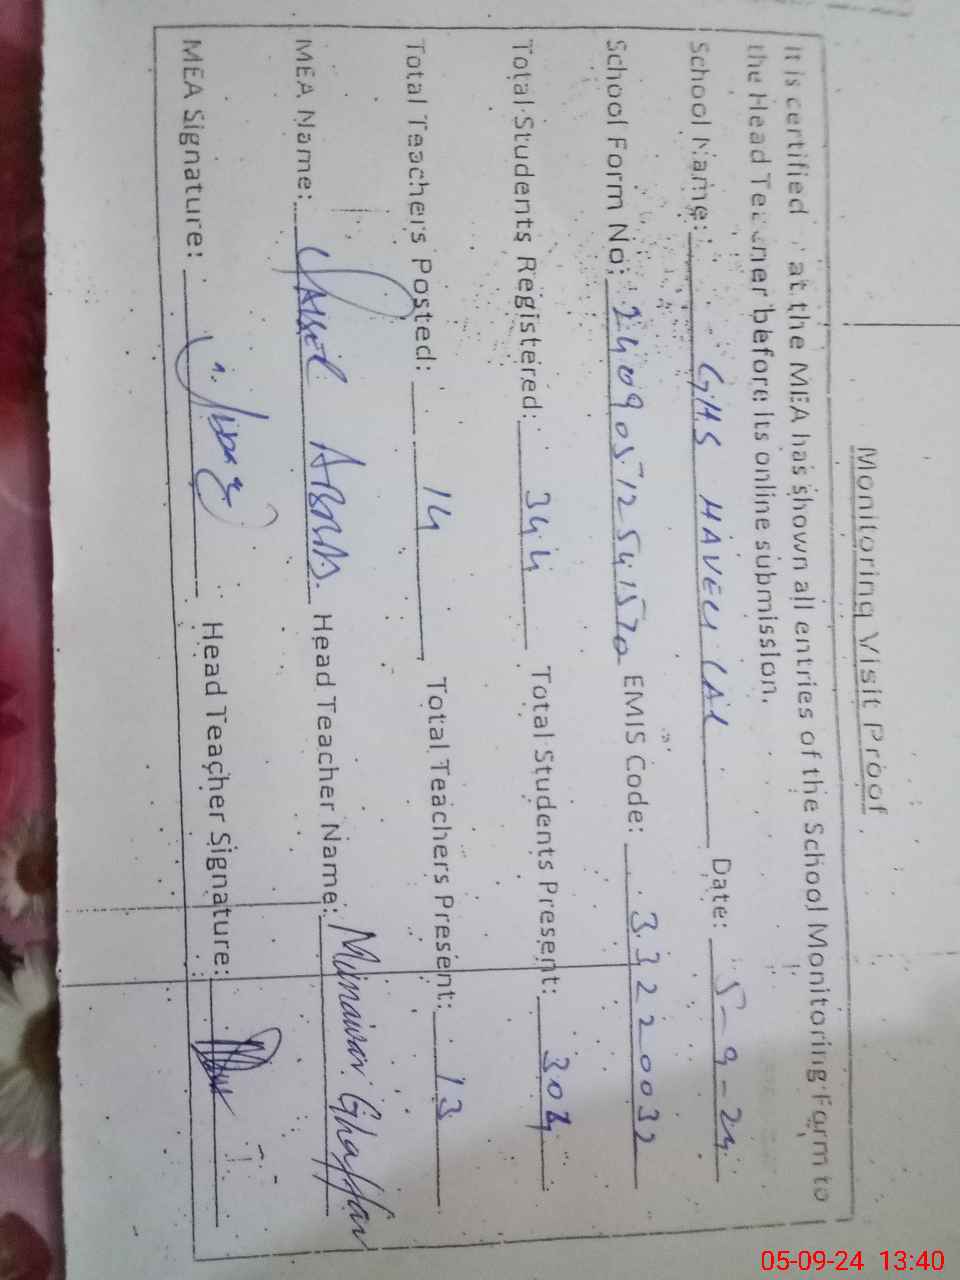 Monitoring Visit Proof
It is certified at the MEA has shown all entries of the School Monitoring Form to
the Head Teacher before its online submission.
School Name: GHS HAVELI LAL Date: 5-9-24
School Form No: 24090512541570 EMIS Code: 33220032
Total Students Registered: 344 Total Students Present: 304
Total Teachers Posted: 14 Total Teachers Present: 13
MEA Name: ABBAS Head Teacher Name: Munawar Ghaffar
MEA Signature: Head Teacher Signature:
05-09-24 13:40